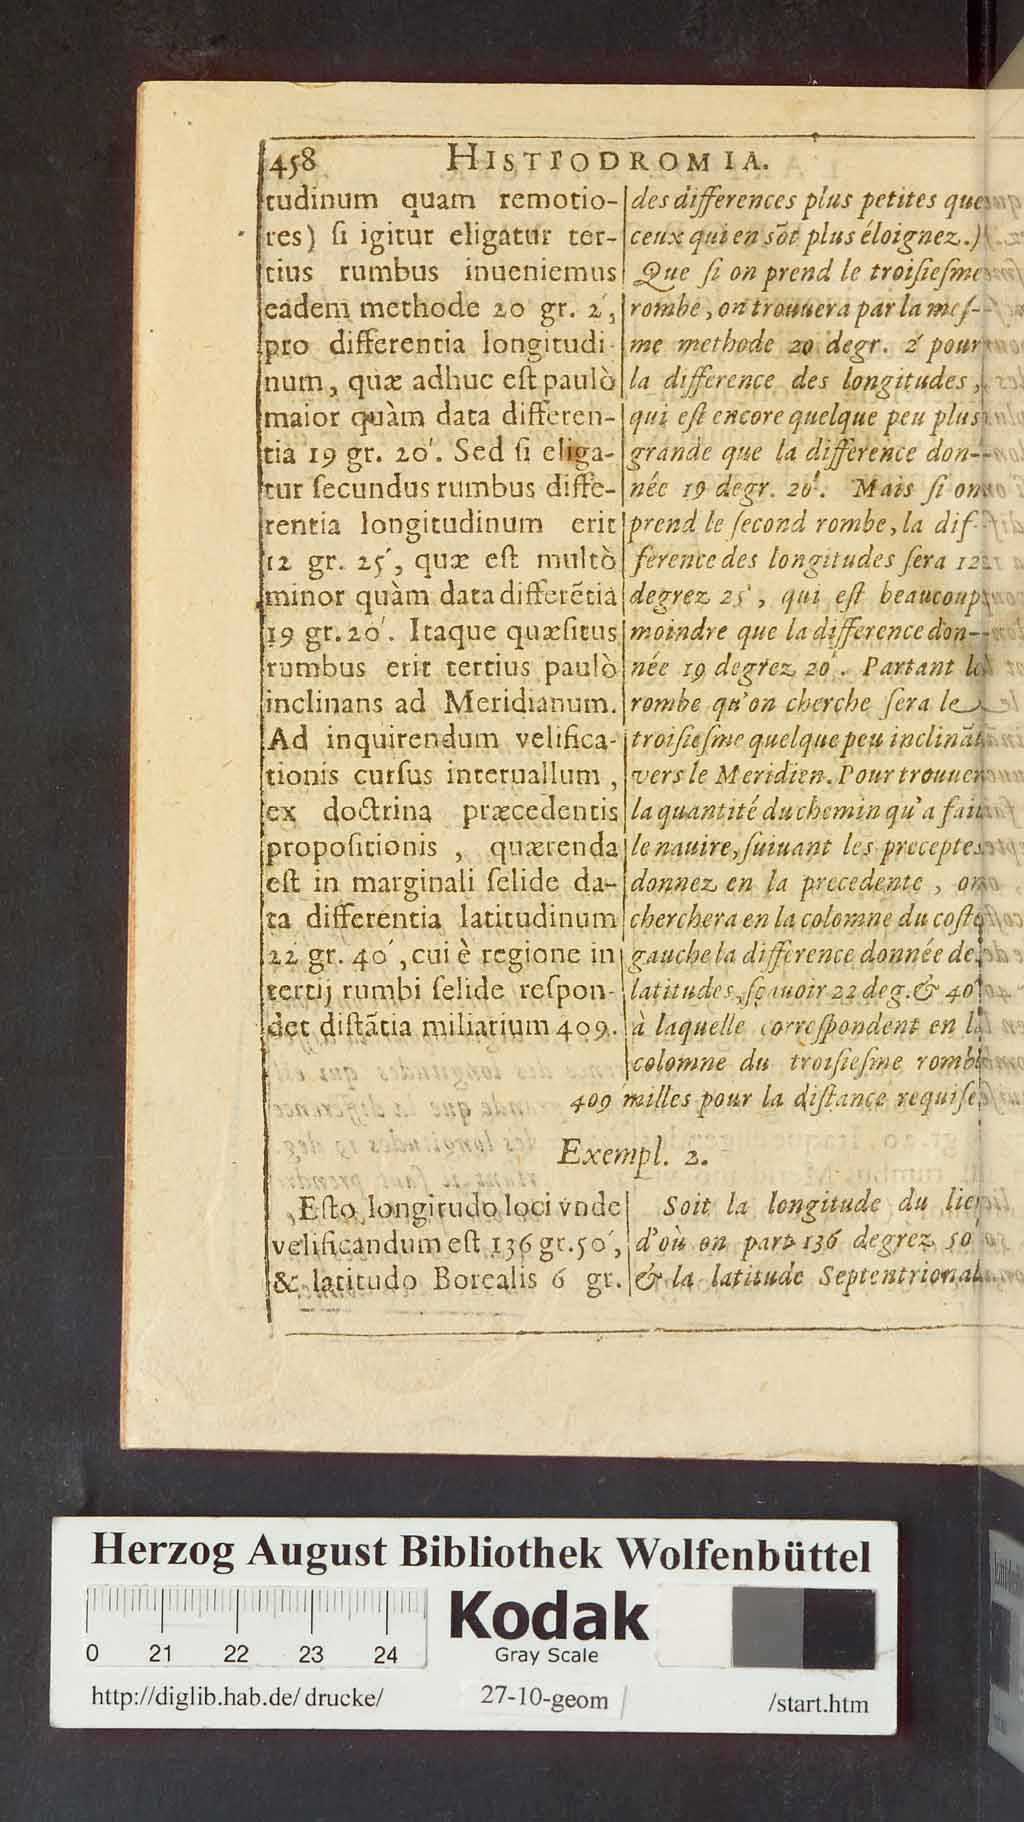 458 HISTIODROMIA.
tudinum quam remotio-
res) ſi igitur eligatur ter-
tius rumbus inueniemus
eadem methode 20 gr. 2′,
pro differentia longitudi-
num, quæ adhuc eſt paulò
maior quàm data differen-
tia 19 gr. 20′. Sed ſi eliga-
tur ſecundus rumbus diffe-
rentia longitudinum erit
12 gr. 25′, quæ eſt multò
minor quàm data differẽtia
19 gr. 20′. Itaque quæſitus
rumbus erit tertius paulò
inclinans ad Meridianum.
Ad inquirendum velifica-
tionis curſus interuallum,
ex doctrina præcedentis
propoſitionis, quærenda
eſt in marginali ſelide da-
ta differentia latitudinum
22 gr. 40′, cui è regione in
tertij rumbi ſelide reſpon-
det diſtãtia miliarium 409.
des differences plus petites que
ceux qui en sõt plus éloignez.)
Que ſi on prend le troiſieſme
rombe, on trouuera par la meſ-
me methode 20 degr. 2′ pour
la difference des longitudes,
qui eſt encore quelque peu plus
grande que la difference don-
née 19 degr. 20′. Mais ſi on
prend le ſecond rombe, la dif-
ference des longitudes ſera 12
degrez 25′, qui eſt beaucoup
moindre que la difference don-
née 19 degrez 20′. Partant le
rombe qu'on cherche ſera le
troiſieſme quelque peu inclinãt
vers le Meridien. Pour trouuer
la quantité du chemin qu'a fait
le nauire, ſuiuant les preceptes
donnez en la precedente, on
cherchera en la colomne du coſté
gauche la difference donnée de
latitudes, ſçauoir 22 deg. & 40′
à laquelle correſpondent en la
colomne du troiſieſme rombe
409 milles pour la diſtance requiſe
Exempl. 2.
Eſto longitudo loci vnde
velificandum eſt 136 gr. 50′,
& latitudo Borealis 6 gr.
Soit la longitude du lieu
d'où on part 136 degrez 50′
& la latitude Septentrional
Herzog August Bibliothek Wolfenbüttel
0 21 22 23 24
Kodak
Gray Scale
http://diglib.hab.de/drucke/ 27-10-geom /start.htm